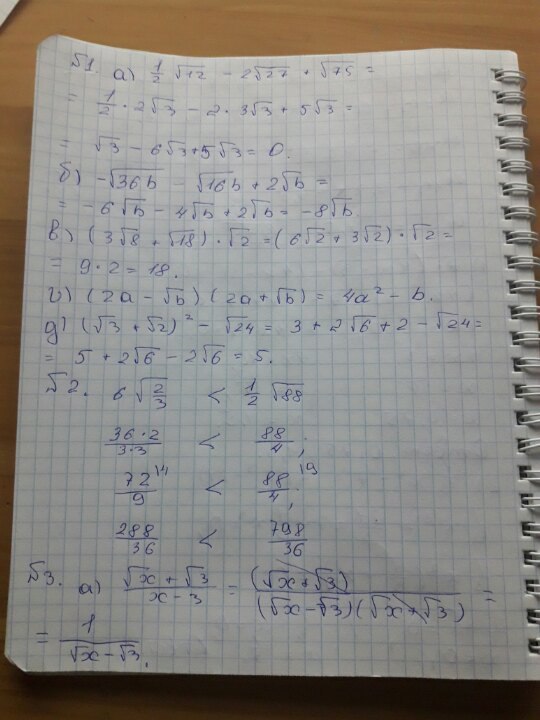 №1. а) 1/2 √12 - 2√27 + √75 =
= 1/2 · 2√3 - 2 · 3√3 + 5√3 =
= √3 - 6√3 + 5√3 = 0.
б) -√36b - √16b + 2√b =
= -6√b - 4√b + 2√b = -8√b
в) (3√8 + √18) · √2 = (6√2 + 3√2) · √2 =
= 9 · 2 = 18.
г) (2a - √b) (2a + √b) = 4a² - b.
д) (√3 + √2)² - √24 = 3 + 2√6 + 2 - √24 =
= 5 + 2√6 - 2√6 = 5.
№2. 6√(2/3) < 1/2 √88
36·2/3·3 < 88/4;
72/9 \4 < 88/4; \9
288/36 < 798/36
№3. а) (√x + √3)/(x - 3) = (√x + √3)/((√x - √3)(√x + √3)) =
= 1/(√x - √3).